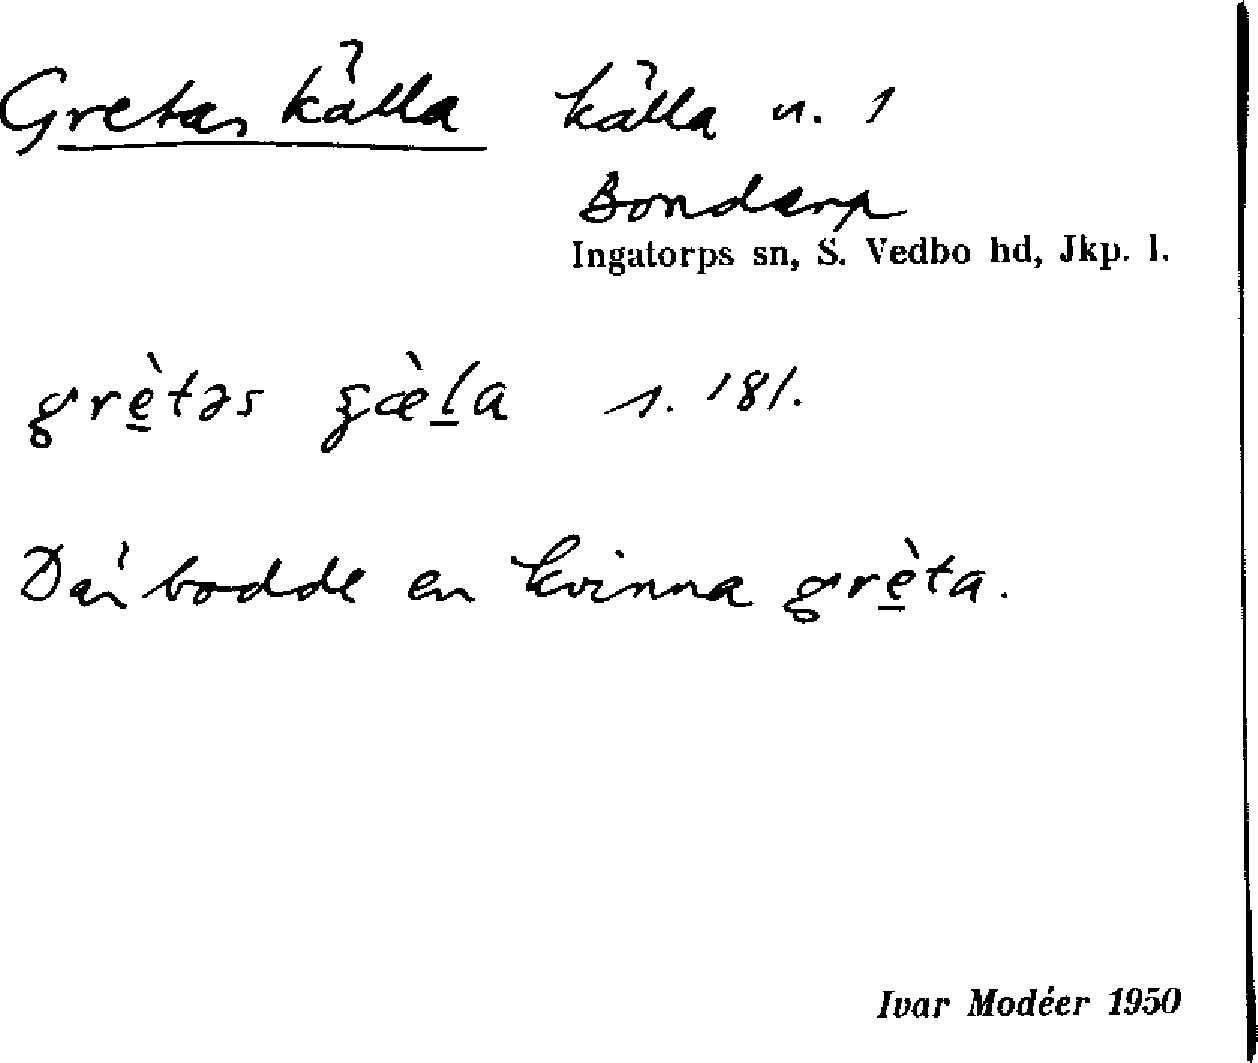 Gretas källa källa n. 1
Bondarp
Ingatorps sn, S. Vedbo hd, Jkp. l.
grètəs s. 181.
Där bodde en kvinna grèta.
Ivar Modéer 1950